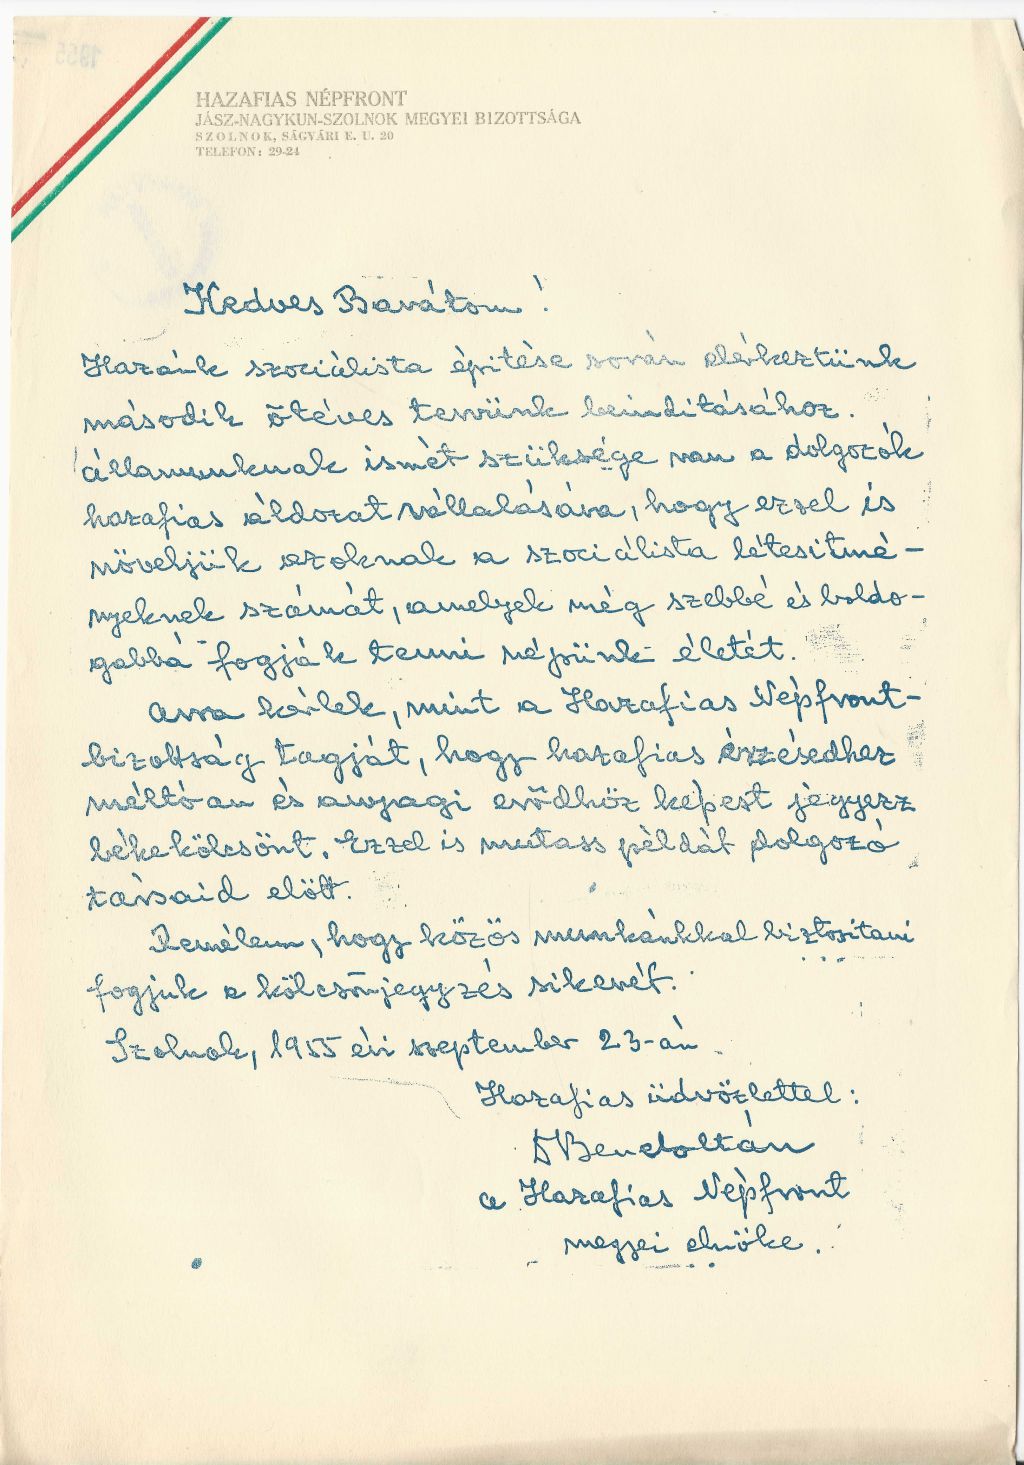 HAZAFIAS NÉPFRONT
JÁSZ-NAGYKUN-SZOLNOK MEGYEI BIZOTTSÁGA
SZOLNOK, SÁGVÁRI E. U. 20
TELEFON: 29-24
1955
Kedves Barátom!
Hazánk szociálista épitése során elérkeztünk
második ötéves tervünk beinditásához.
államunknak ismét szüksége van a dolgozók
hazafias áldozatvállalására, hogy ezzel is
növeljük azoknak a szociálista létesitmé-
nyeknek számát, amelyek még szebbé és boldo-
gabbá fogják tenni népünk életét.
Arra kérlek, mint a Hazafias Népfront-
bizottság tagját, hogy hazafias érzésedhez
méltóan és anyagi erődhöz képest jegyezz
békekölcsönt. Ezzel is mutass példát dolgozó
társaid előtt.
Remélem, hogy közös munkánkkal biztositani
fogjuk a kölcsönjegyzés sikerét.
Szolnok, 1955 évi szeptember 23-án
Hazafias üdvözlettel:
a Hazafias Népfront
megyei elnöke.